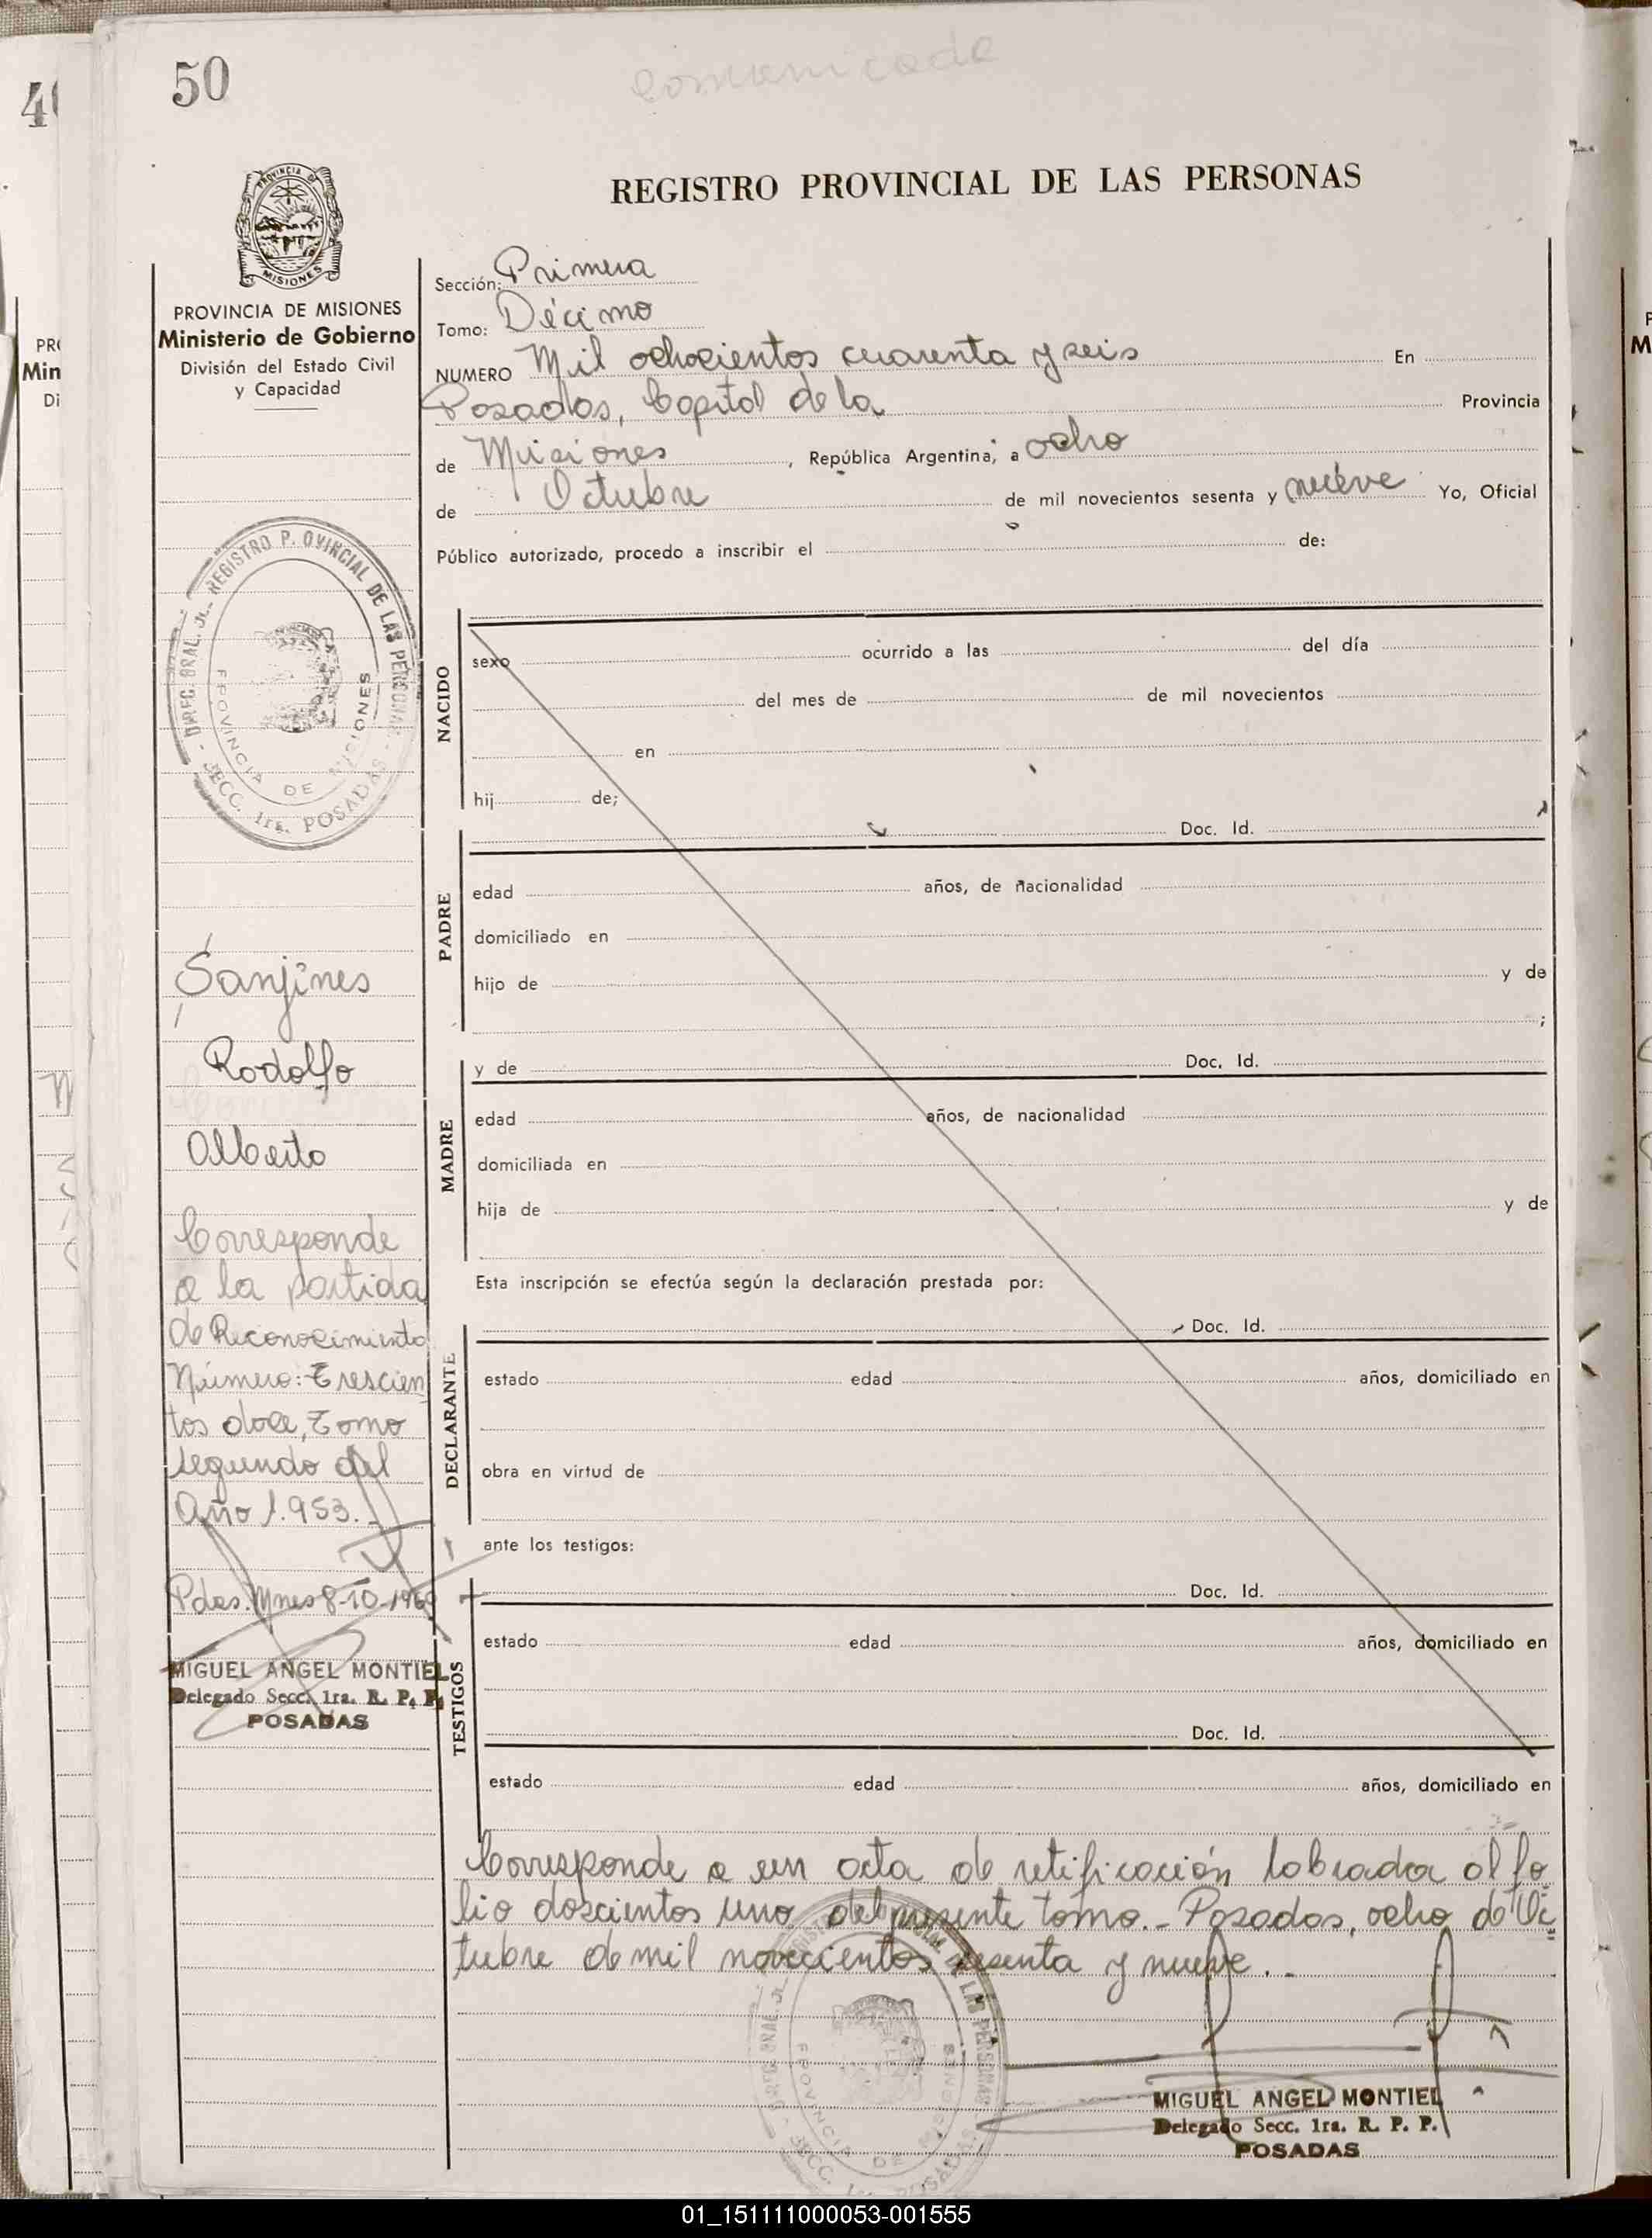 50
comunicada
REGISTRO PROVINCIAL DE LAS PERSONAS
PROVINCIA DE MISIONES
Ministerio de Gobierno
División del Estado Civil
y Capacidad
Sección: Primera
Tomo: Décimo
NUMERO Mil ochocientos cuarenta y seis En
Posadas, Capital de la Provincia
de Misiones, República Argentina, a ocho
de Octubre de mil novecientos sesenta y nueve Yo, Oficial
Público autorizado, procedo a inscribir el de:
DIREC. GRAL. REGISTRO P. OVINCIAL DE LAS PERSONAS
PROVINCIA DE MISIONES
SECC. 1ra. POSADAS
NACIDO
sexo ocurrido a las del día
del mes de de mil novecientos
en
hij de;
Doc. Id.
PADRE
edad años, de nacionalidad
domiciliado en
hijo de y de
;
y de Doc. Id.
MADRE
edad años, de nacionalidad
domiciliada en
hija de y de
Esta inscripción se efectúa según la declaración prestada por:
Doc. Id.
DECLARANTE
estado edad años, domiciliado en
obra en virtud de
ante los testigos:
Doc. Id.
TESTIGOS
estado edad años, domiciliado en
Doc. Id.
estado edad años, domiciliado en
Sanjines
Rodolfo
Alberto
Corresponde
a la partida
de Reconocimiento
Número: Trescien
tos doce, Tomo
segundo del
Año 1.953.-
Pdas. Mnes 8-10-1969
MIGUEL ANGEL MONTIEL
Delegado Secc. 1ra. R. P. P.
POSADAS
Corresponde a un acta de retificación labrada al fo-
lio doscientos uno del presente tomo.- Posadas, ocho de Oc
tubre de mil novecientos sesenta y nueve.-
MIGUEL ANGEL MONTIEL
Delegado Secc. 1ra. R. P. P.
POSADAS
01_151111000053-001555